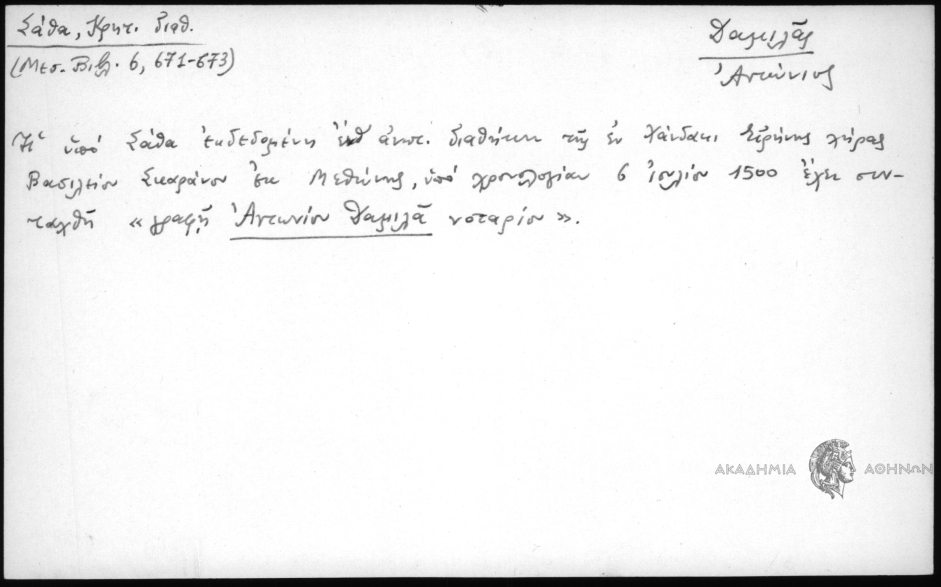 Σάθα, Κρητ. διαθ.
(Μεσ. Βιβλ. 6, 671-673)
Δαμιλᾶς
Ἀντώνιος
Ἡ ὑπὸ Σάθα ἐκδεδομένη ἔνθ' ἀνωτ. διαθήκη τῆς ἐν Χάνδακι Εἰρήνης χήρας
Βασιλείου Σκαράνου ἐκ Μεθώνης, ὑπὸ χρονολογίαν 6 Ἰουλίου 1500 ἔχει συν-
ταχθῆ «γραφῇ Ἀντωνίου Δαμιλᾶ νοταρίου».
ΑΚΑΔΗΜΙΑ ΑΘΗΝΩΝ